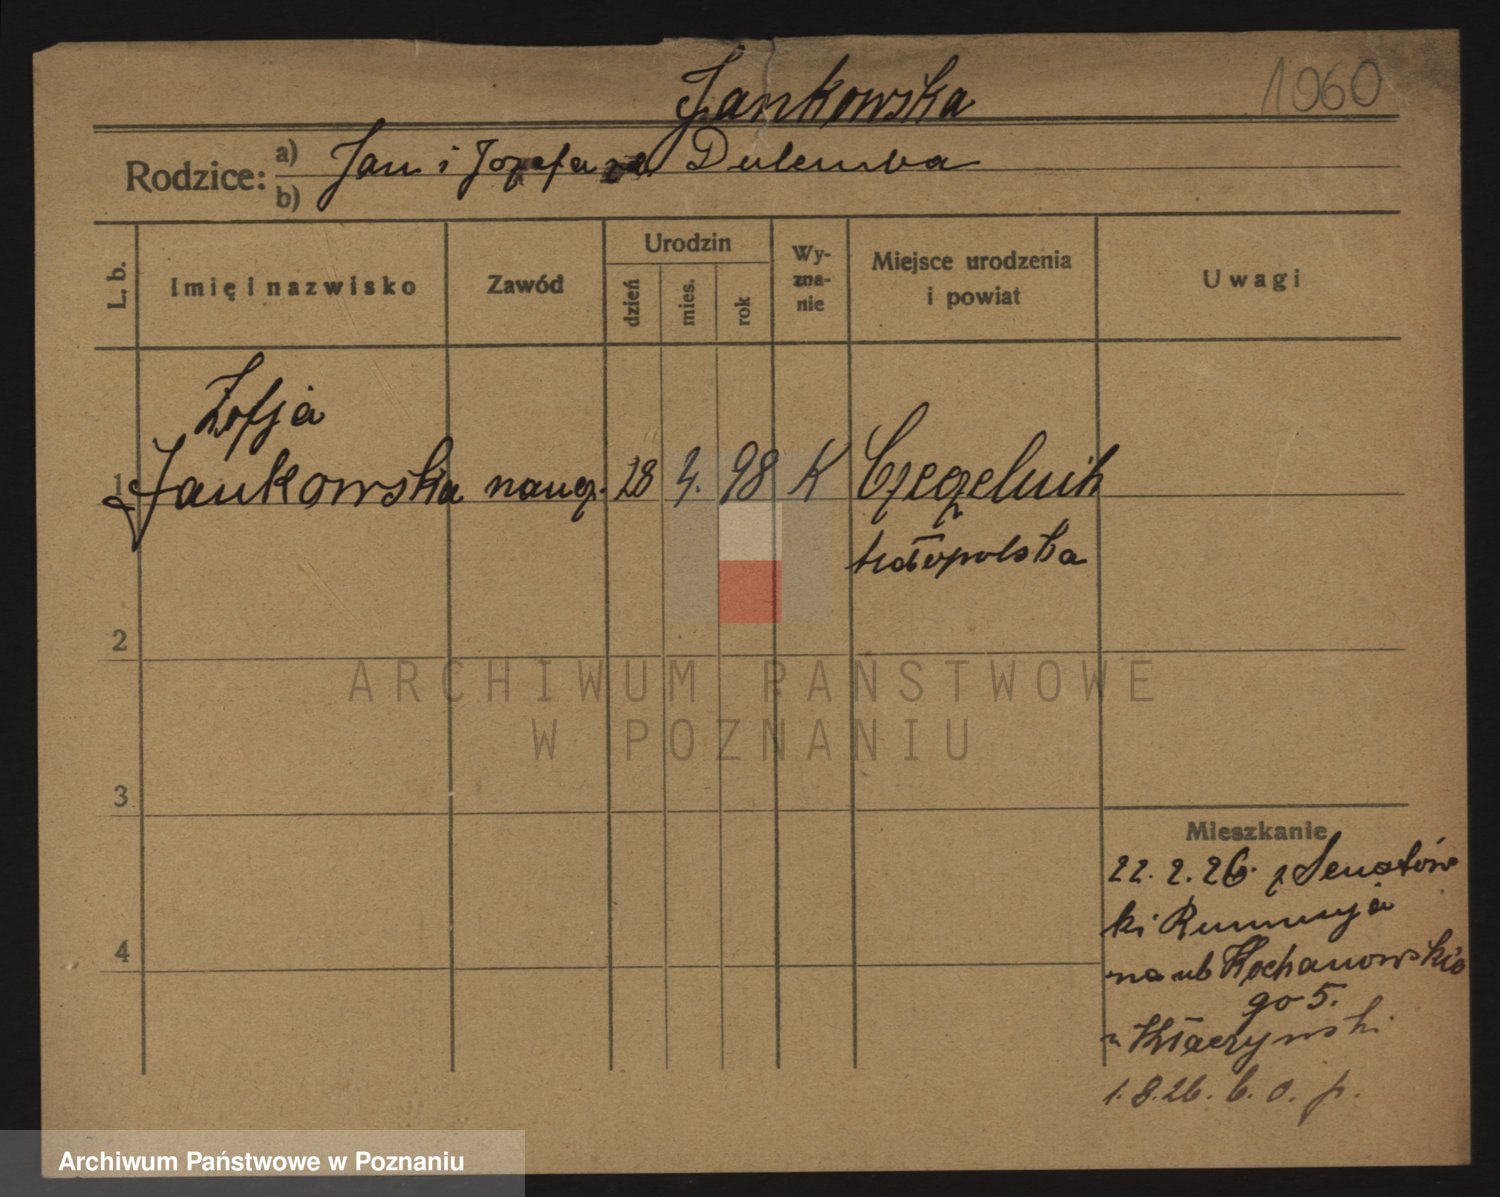 Jankowska
1060
Rodzice:
a) Jan i Jozefa za Dulemba
b)
L. b.
Imię i nazwisko
Zawód
Urodzin
dzień
mies.
rok
Wy-
zna-
nie
Miejsce urodzenia
i powiat
Uwagi
Zofja
1 Jankowska naucz. 28 4. 98 K Czeczelnik
Małopolska
2
3
4
Mieszkanie
22. 2. 26. z Senatów
ki Rumunja
na ul Kochanowskie
go 5.
u Kłaczynski
1. 8. 26. b. o. p.
ARCHIWUM PAŃSTWOWE
W POZNANIU
Archiwum Państwowe w Poznaniu